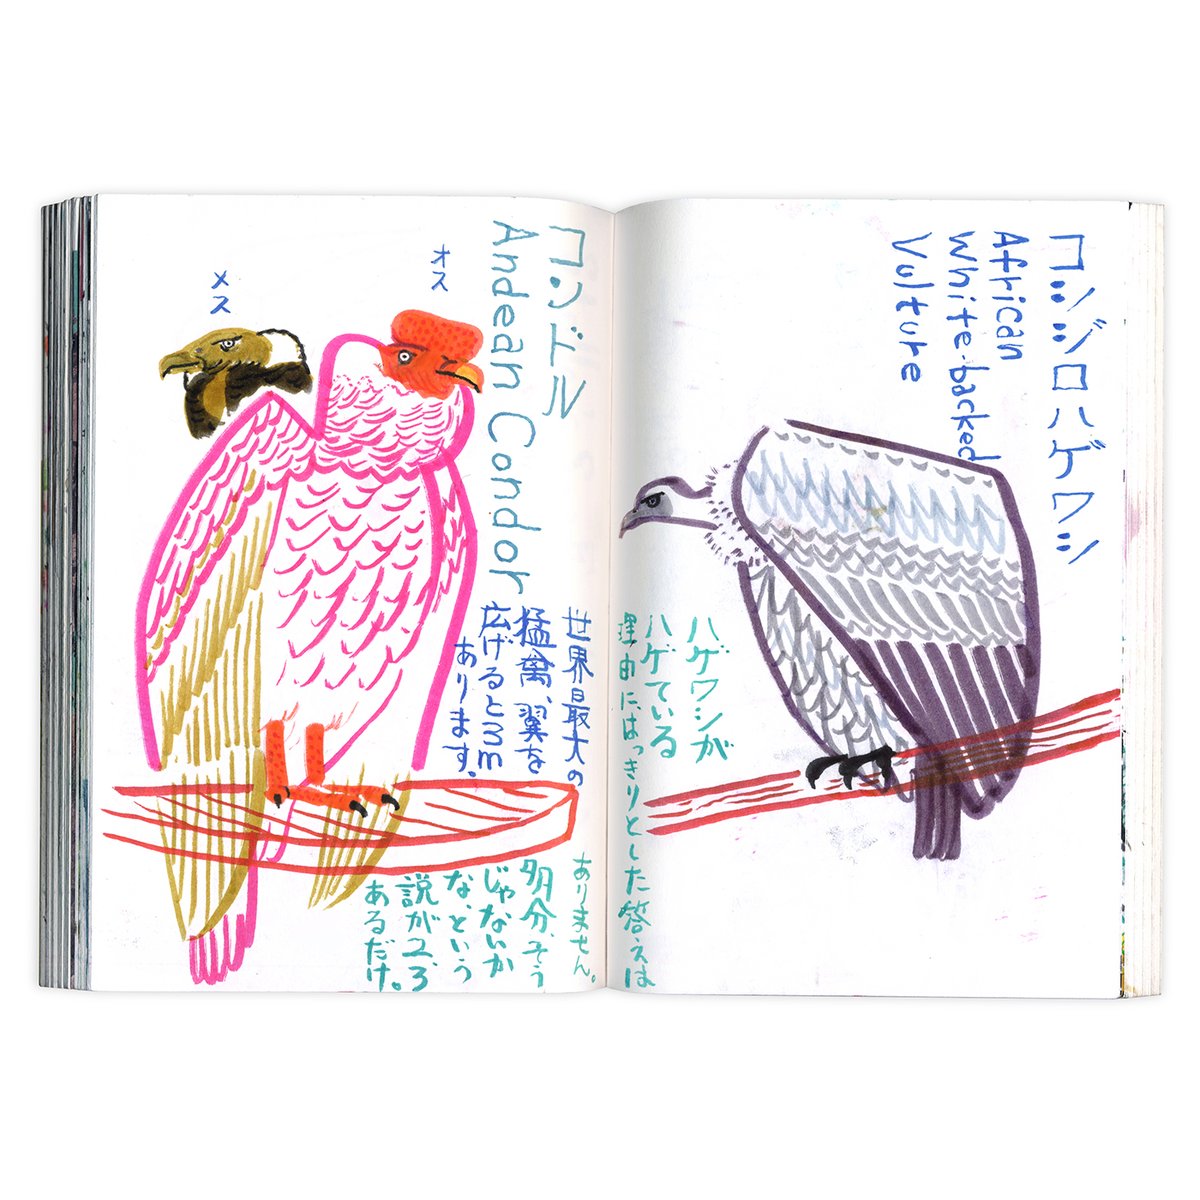 コシジロハゲワシ
African
White-backed
Vulture
ハゲワシが
ハゲている
理由にはっきりとした答えは
ありません。
多分、そう
じゃないか
な、という
説が2、3
あるだけ。
コンドル
Andean Condor
オス
メス
世界最大の
猛禽、翼を
広げると3m
あります。